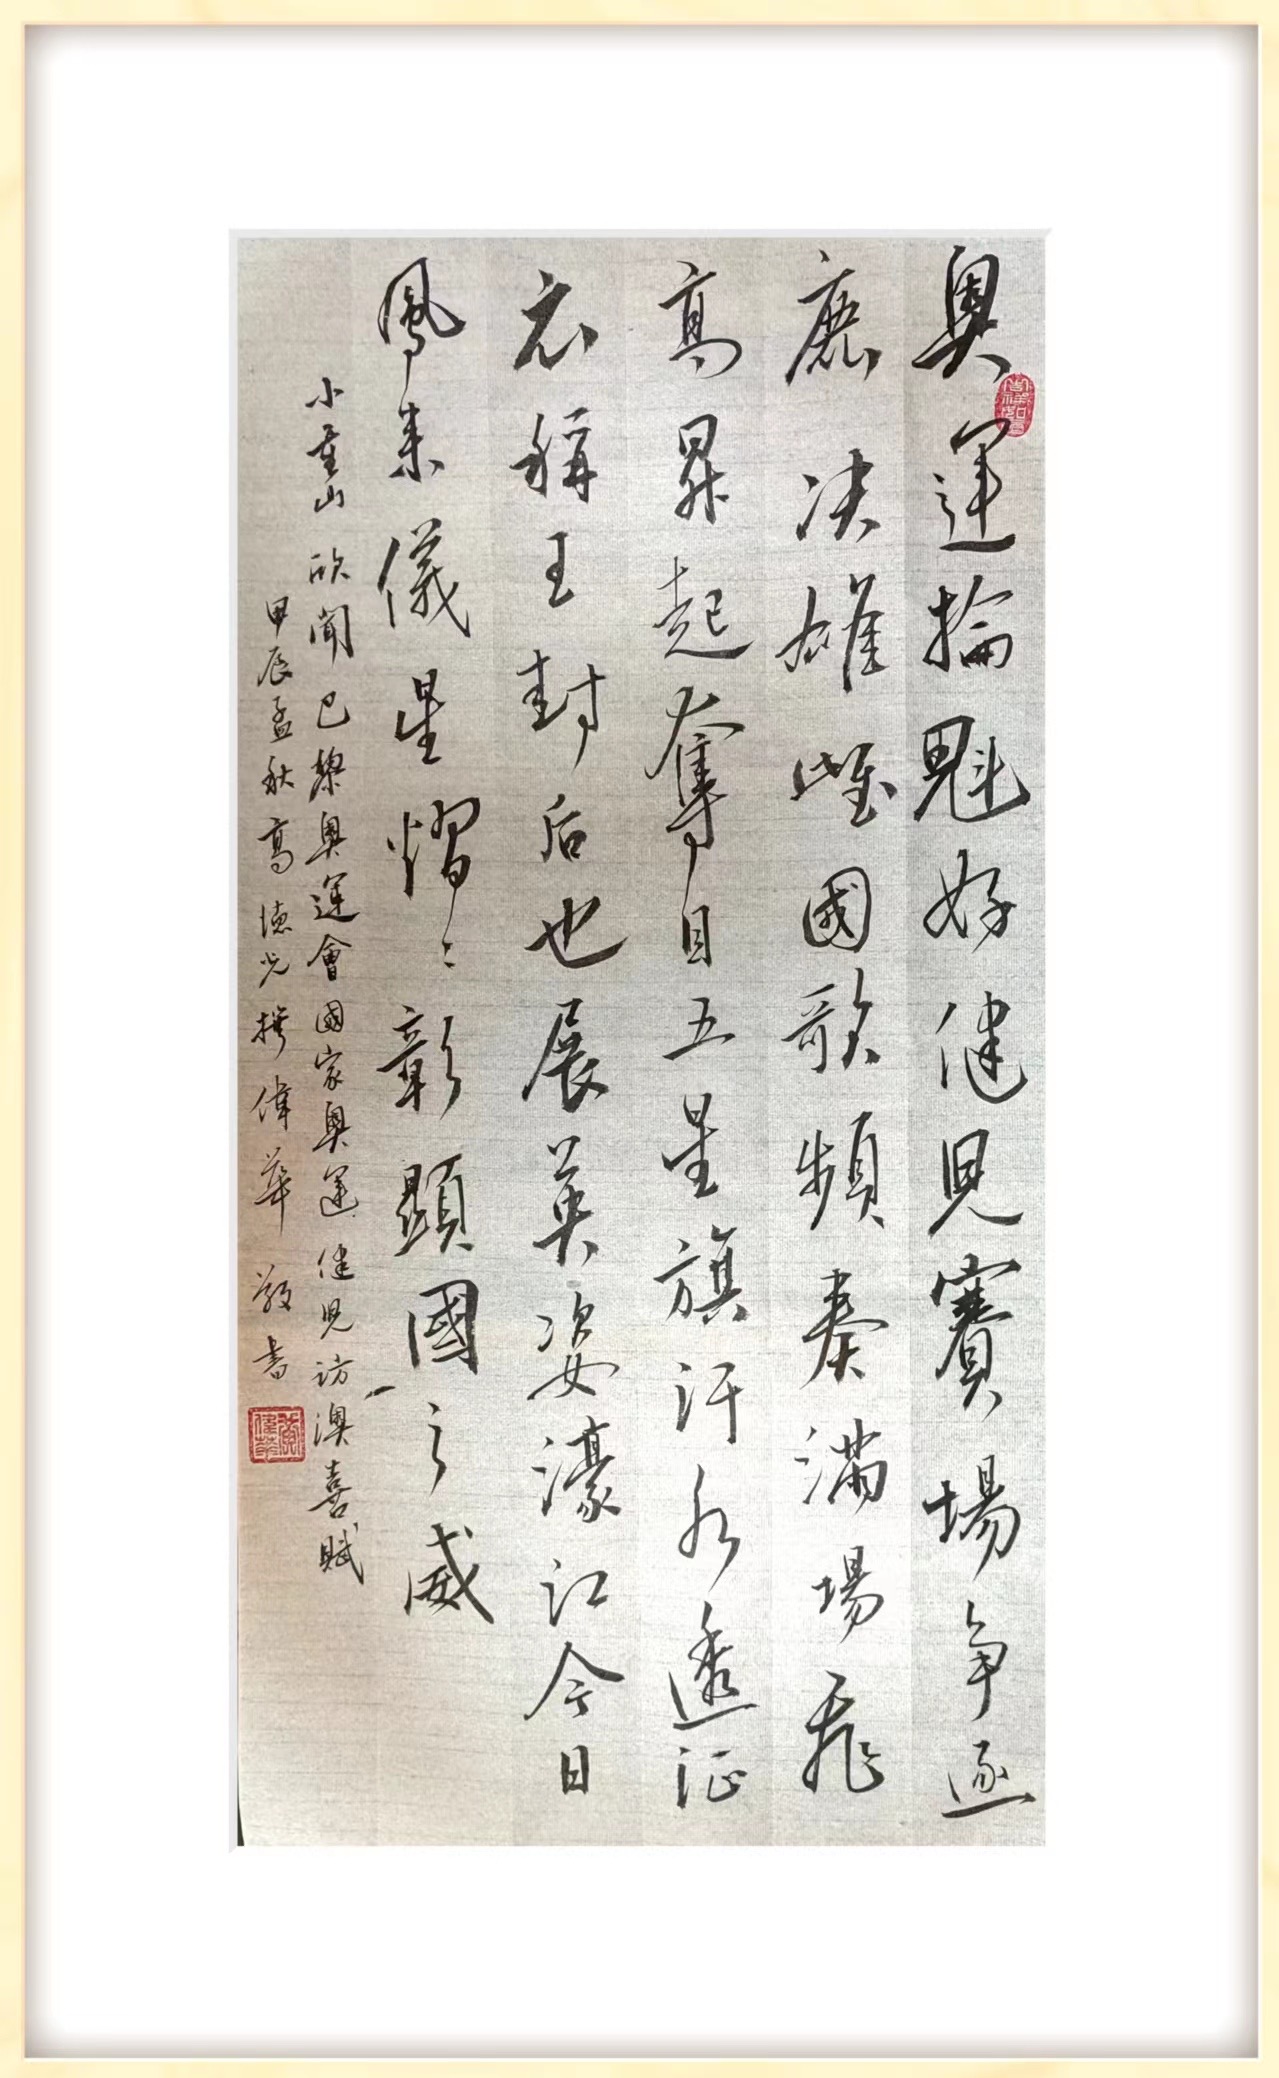 奥運掄魁好健兒賽場争逐
鹿決雄雌國歌頻奏滿場飛
高昇起奪目五星旗汗水透征
衣稱王封后也展英姿濠江今日
鳳来儀星熠〻彰顯國之威
小重山欣聞巴黎奥運會國家奥運健兒訪澳喜賦
甲辰孟秋高德光撰偉華敬書